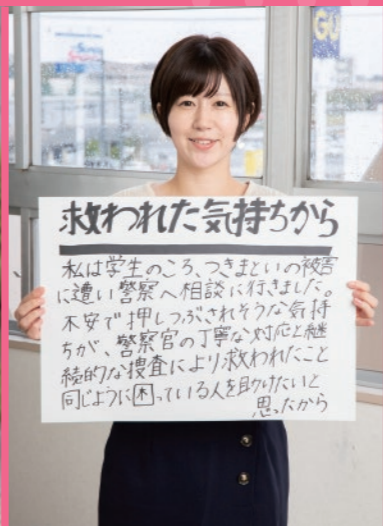 救われた気持ちから
私は学生のころ、つきまといの被害
に遭い警察へ相談に行きました。
不安で押しつぶされそうな気持
ちが、警察官の丁寧な対応と継
続的な捜査により救われたこと
同じように困っている人を助けたいと
思ったから
GU